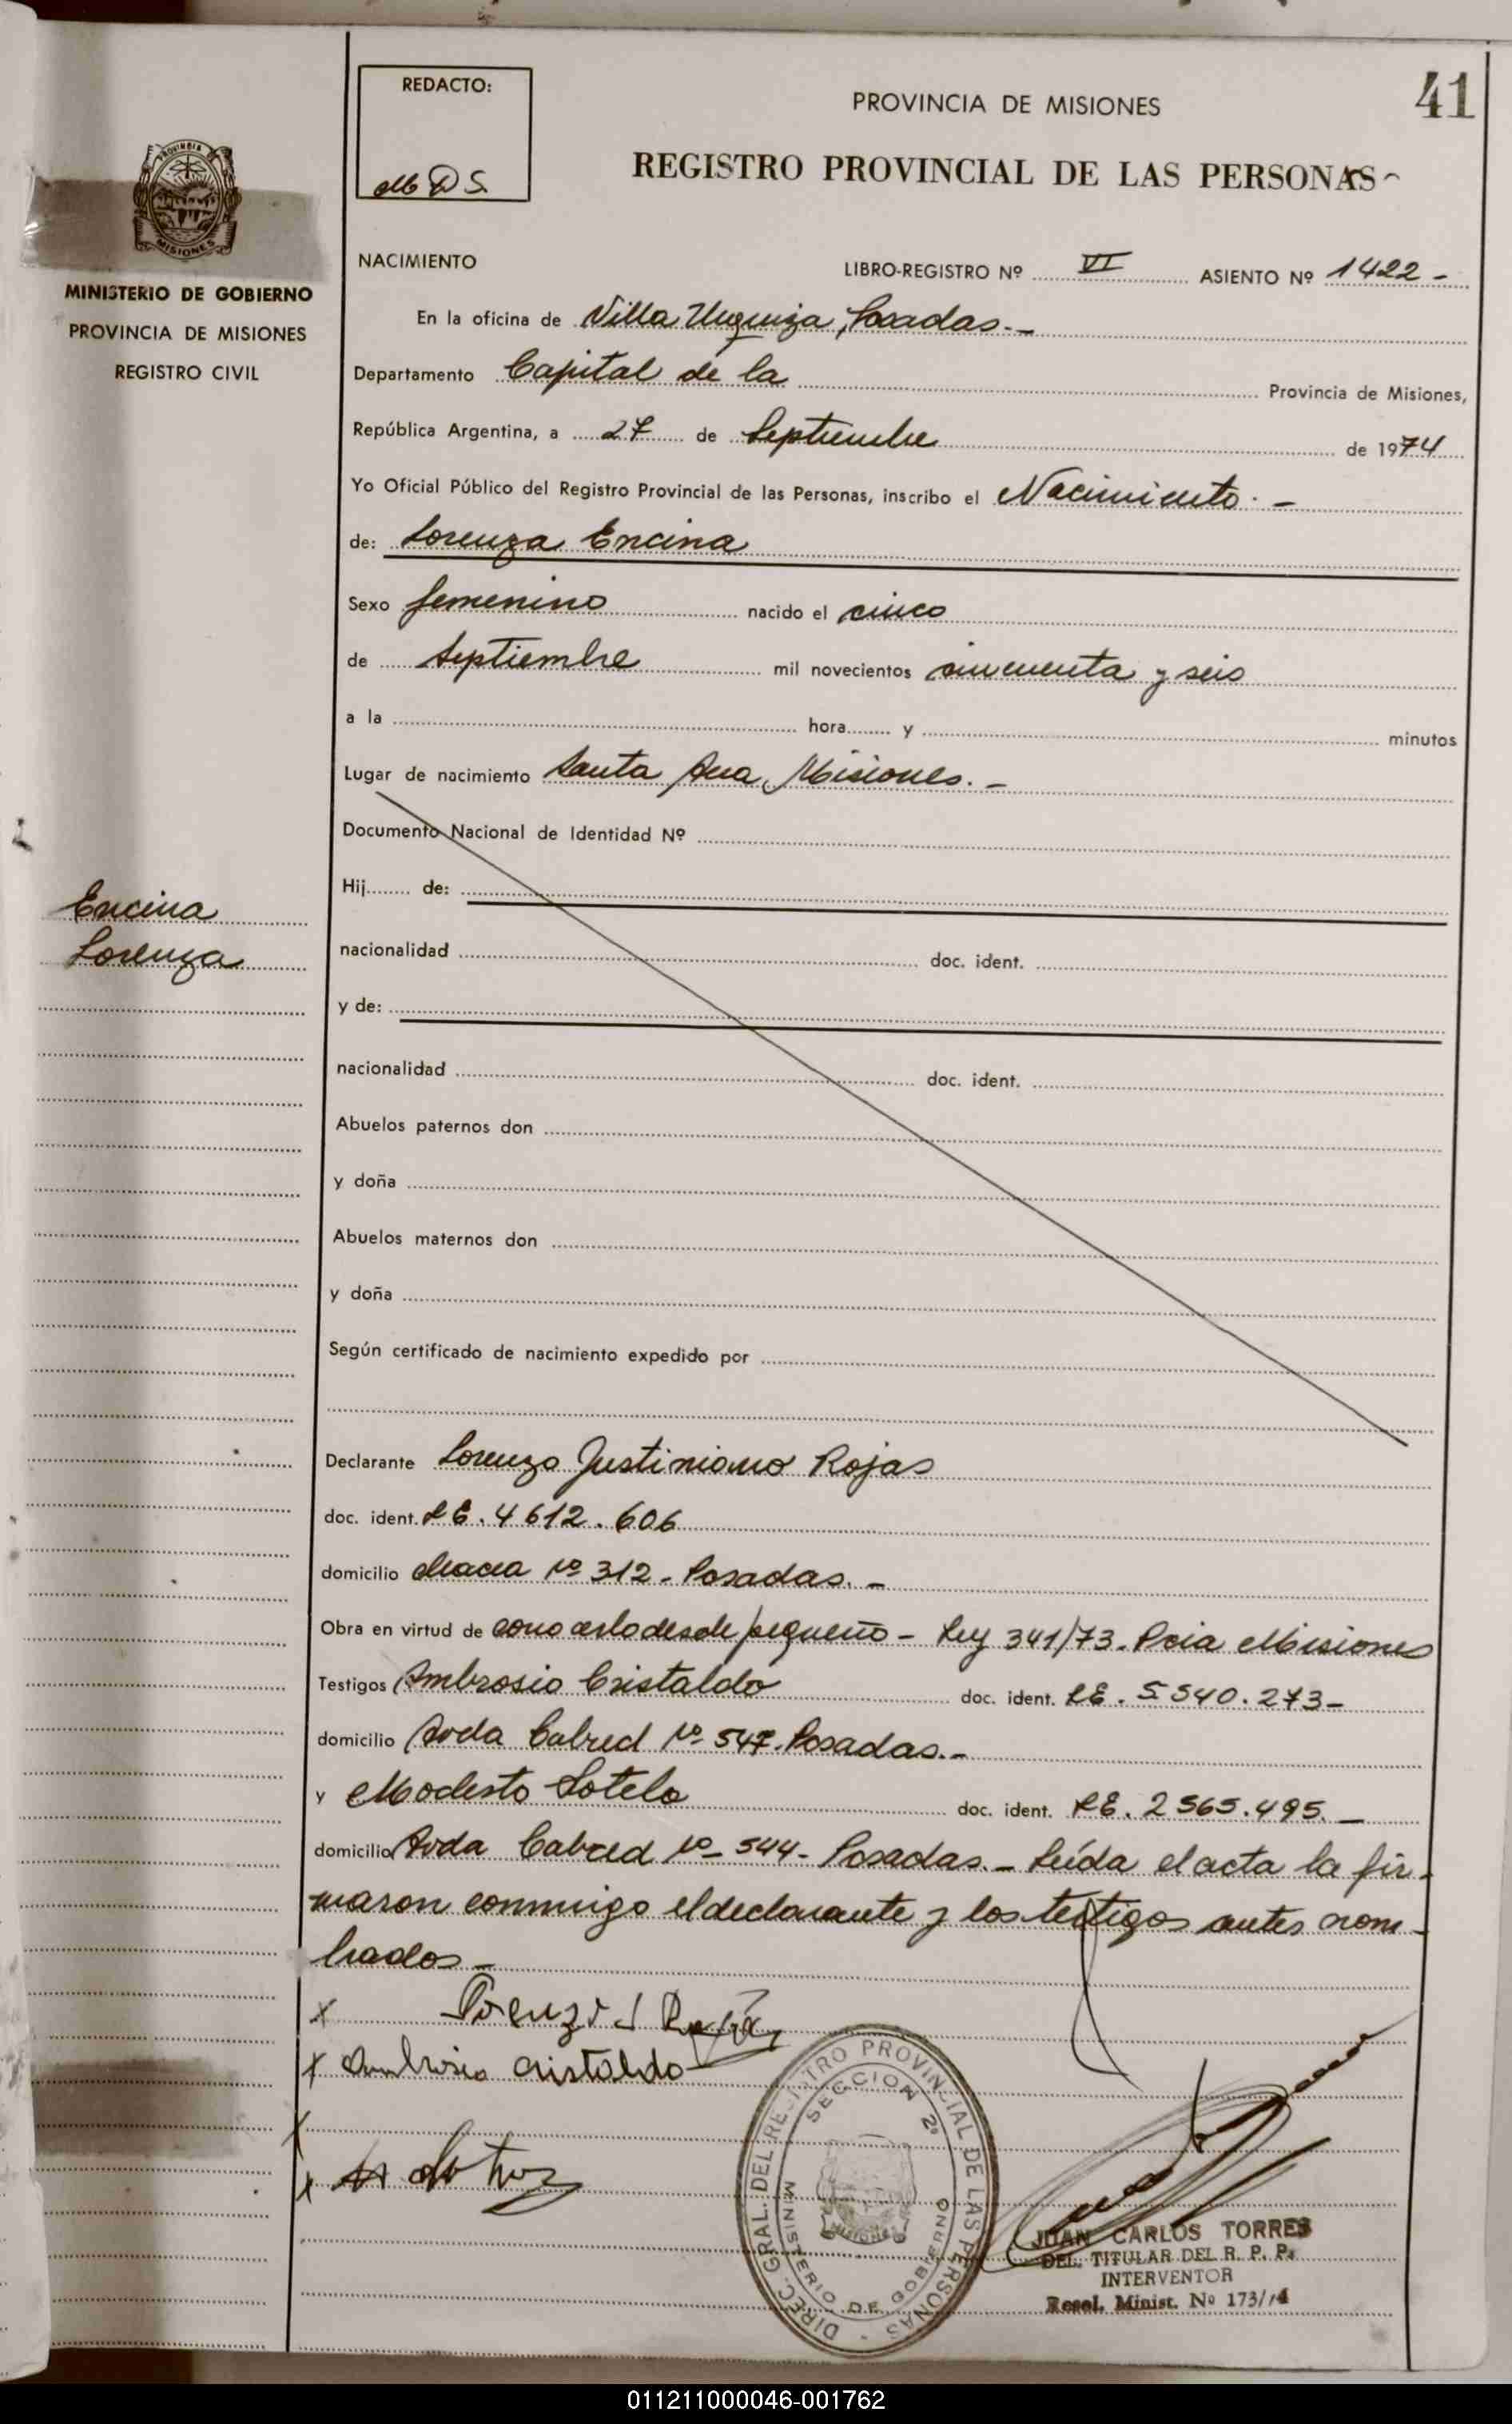 41
REDACTO:
PROVINCIA DE MISIONES
REGISTRO PROVINCIAL DE LAS PERSONAS
PROVINCIA
MISIONES
MINISTERIO DE GOBIERNO
PROVINCIA DE MISIONES
REGISTRO CIVIL
NACIMIENTO LIBRO-REGISTRO Nº VI ASIENTO Nº 1422-
En la oficina de Villa Urquiza, Posadas.-
Departamento Capital de la Provincia de Misiones,
República Argentina, a 27 de Septiembre de 1974
Yo Oficial Público del Registro Provincial de las Personas, inscribo el Nacimiento.-
de: Lorenza Encina
Sexo femenino nacido el cinco
de Septiembre mil novecientos cincuenta y seis
a la hora y minutos
Lugar de nacimiento Santa Ana, Misiones.-
Documento Nacional de Identidad Nº
Hij de:
Encina
Lorenza
nacionalidad doc. ident.
y de:
nacionalidad doc. ident.
Abuelos paternos don
y doña
Abuelos maternos don
y doña
Según certificado de nacimiento expedido por
Declarante Lorenzo Justiniano Rojas
doc. ident. LE. 4612.606
domicilio Nº 312 - Posadas.-
Obra en virtud de conocerlo desde pequeño - Ley 341/73. Pcia Misiones
Testigos Ambrosio Cristaldo doc. ident. LE. 5540.273-
domicilio Avda Cabred Nº 547. Posadas.-
y Modesto Sotelo doc. ident. LE. 2565.495.-
domicilio Avda Cabred Nº 544- Posadas.- Leída el acta la fir-
maron conmigo el declarante y los testigos antes nom-
brados-
x Lorenzo J Rojas
x Ambrosio Cristaldo
x
x
DIREC. GRAL. DEL REGISTRO PROVINCIAL DE LAS PERSONAS -
SECCION 2º
MISIONES
MINISTERIO DE GOBIERNO
JUAN CARLOS TORRES
DEL. TITULAR DEL R. P. P.
INTERVENTOR
Resol. Minist. Nº 173/74
011211000046-001762